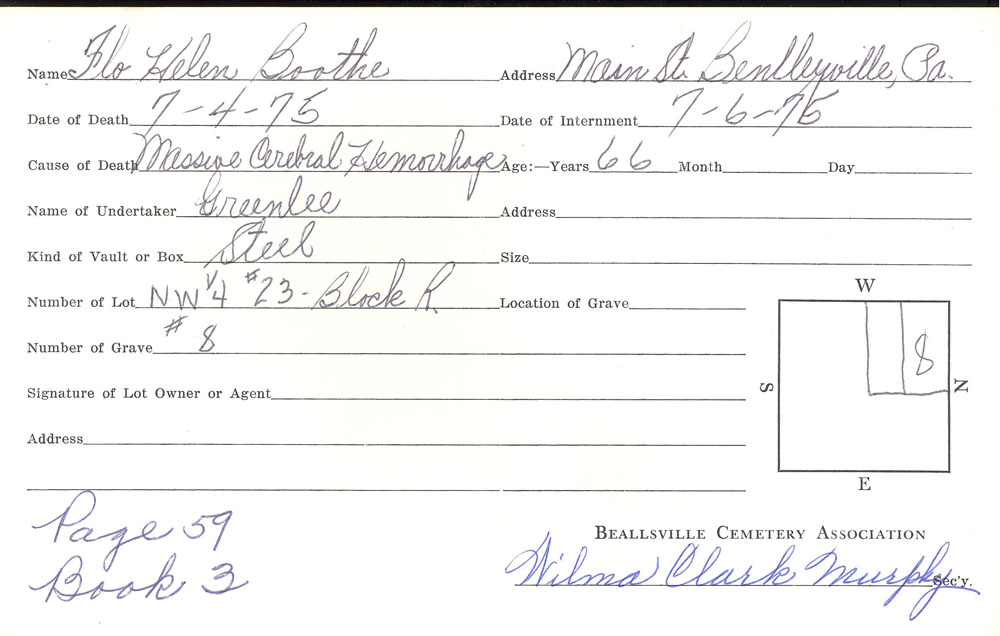 Name Flo Helen Boothe Address Main St. Bentlleyville, Pa.
Date of Death 7-4-75 Date of Internment 7-6-75
Cause of Death Massive Cerebral Hemorrhage Age:—Years 66 Month Day
Name of Undertaker Greenlee Address
Kind of Vault or Box Steel Size
Number of Lot NW 1/4 #23 - Block R Location of Grave
Number of Grave #8
Signature of Lot Owner or Agent
Address
W
8
S
N
E
Page 59
Book 3
BEALLSVILLE CEMETERY ASSOCIATION
Wilma Clark Murphy Sec'y.